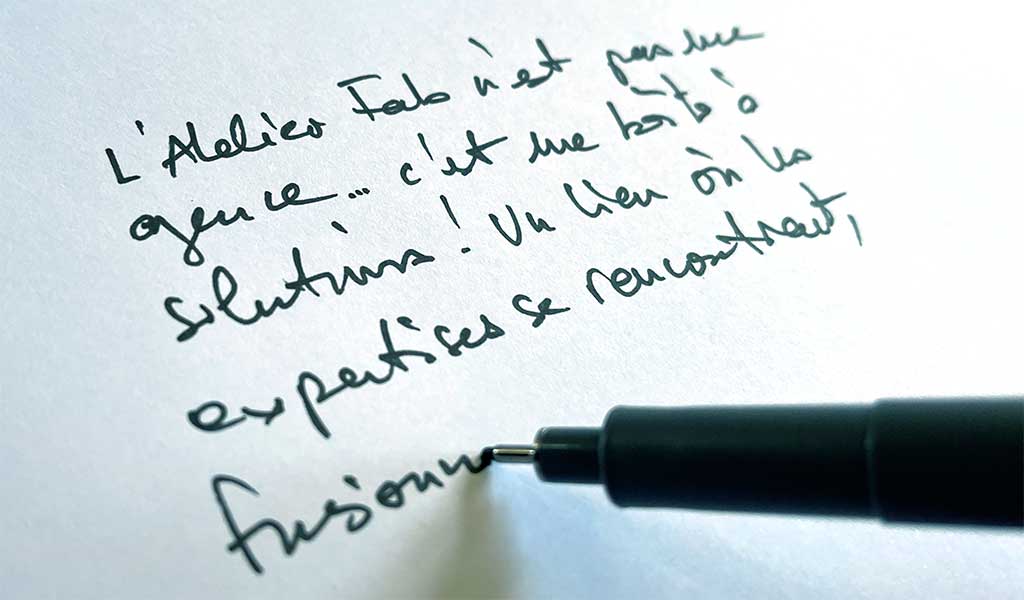 L'Atelier Fab n'est pas une
agence... c'est une boîte à
solutions ! Un lieu où les
expertises se rencontrent,
fusionn